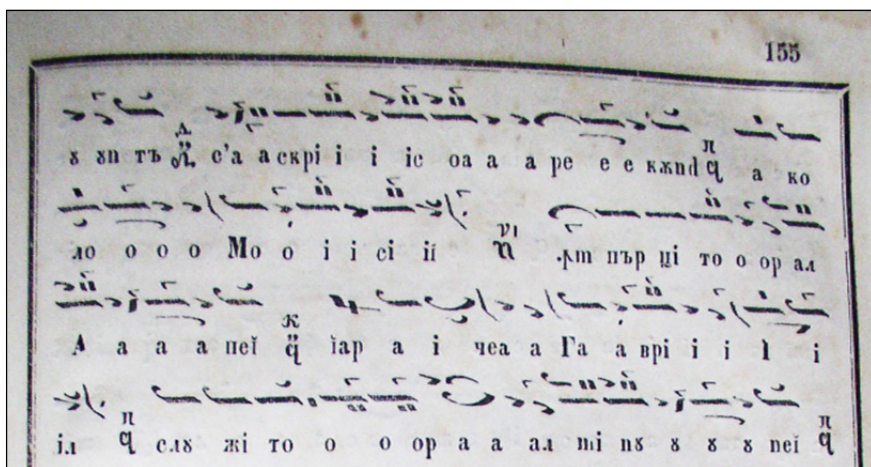 155
ȣ ȣп тъ с'а а скрі і і іс оа а а ре е е кѫпd а ко
ло о о о Мо о і і сіі їі .рт пър ці то о ор ал
А а а а пеї їар а і чеа а Га а врі і і І і
іл слȣ жі то о о ор а а ал ті пȣ ȣ ȣ ȣ пеї